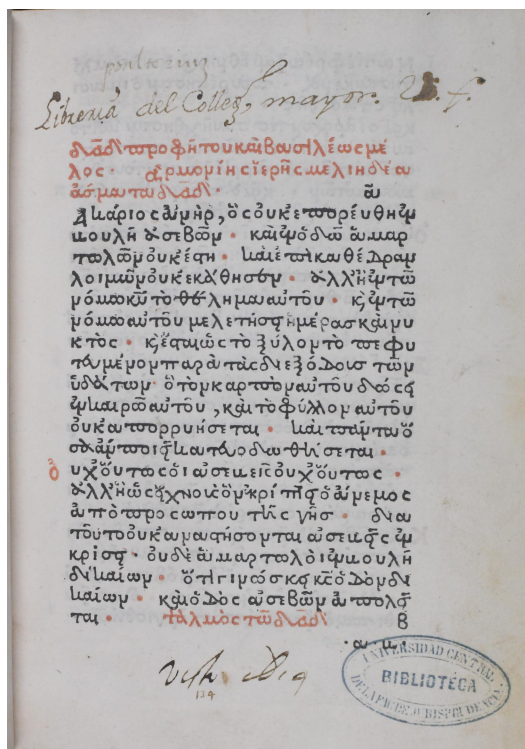 Libreria del Colleg. mayor.
δαδ προφήτου και βασιλέως με
λος · αρμονίης ιερῆς μελιηδέα
ᾄσματα δαδ · α
Μακάριος ἀνὴρ, ὃς οὐκ ἐπορεύθη ἐν
βουλῇ ἀσεβῶν · καὶ ἐν ὁδῷ ἁμαρ
τωλῶν οὐκ ἔστη · καὶ ἐπὶ καθέδρα
λοιμῶν οὐκ ἐκάθησεν · ἀλλ' ἢ ἐν τῶ
νόμω κυ τὸ θέλημα αυτοῦ · κ, ἐν τῶ
νόμω αυτοῦ μελετήσει ημέρας και νυ
κτὸς · κ, ἔσται ὡς τὸ ξύλον τὸ πεφυ
τευμένον παρὰ τὰς διεξόδους τῶν
ὑδάτων · ὃ τὸν καρπὸν αυτοῦ δώσει
ἐν καιρῶ αυτοῦ, και τὸ φύλλον αυτοῦ
οὐκ απορρυήσεται · καὶ πάντα ὅ
σα ἂν ποιῇ κατευοδωθήσεται ·
ουχ ὅυτως ὁι ασεβεῖς ουχ ὅυτως ·
ἀλλ' ἢ ὡς χνοῦς ὃν εκρίπτει ὁ άνεμος
απὸ προσώπου τῆς γῆς · δια
τοῦτο ουκ αναστήσονται ασεβεῖς εν
κρίσει · ουδὲ ἁμαρτωλοὶ εν βουλῇ
δικαίων · ὅτι γινώσκει κς ὁδὸν δι
καίων · και ὁδὸς ασεβῶν απολεῖ
ται · ψαλμὸς τῶ δαδ Β
· α · ιι ·
134
UNIVERSIDAD CENTRAL
BIBLIOTECA
DE LA FAC. DE JURISPRUDENCIA